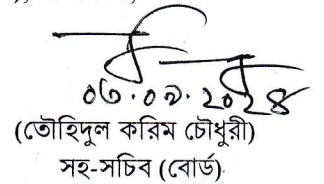 ০৩.০৯.২০২৪
(তৌহিদুল করিম চৌধুরী)
সহ-সচিব (বোর্ড)